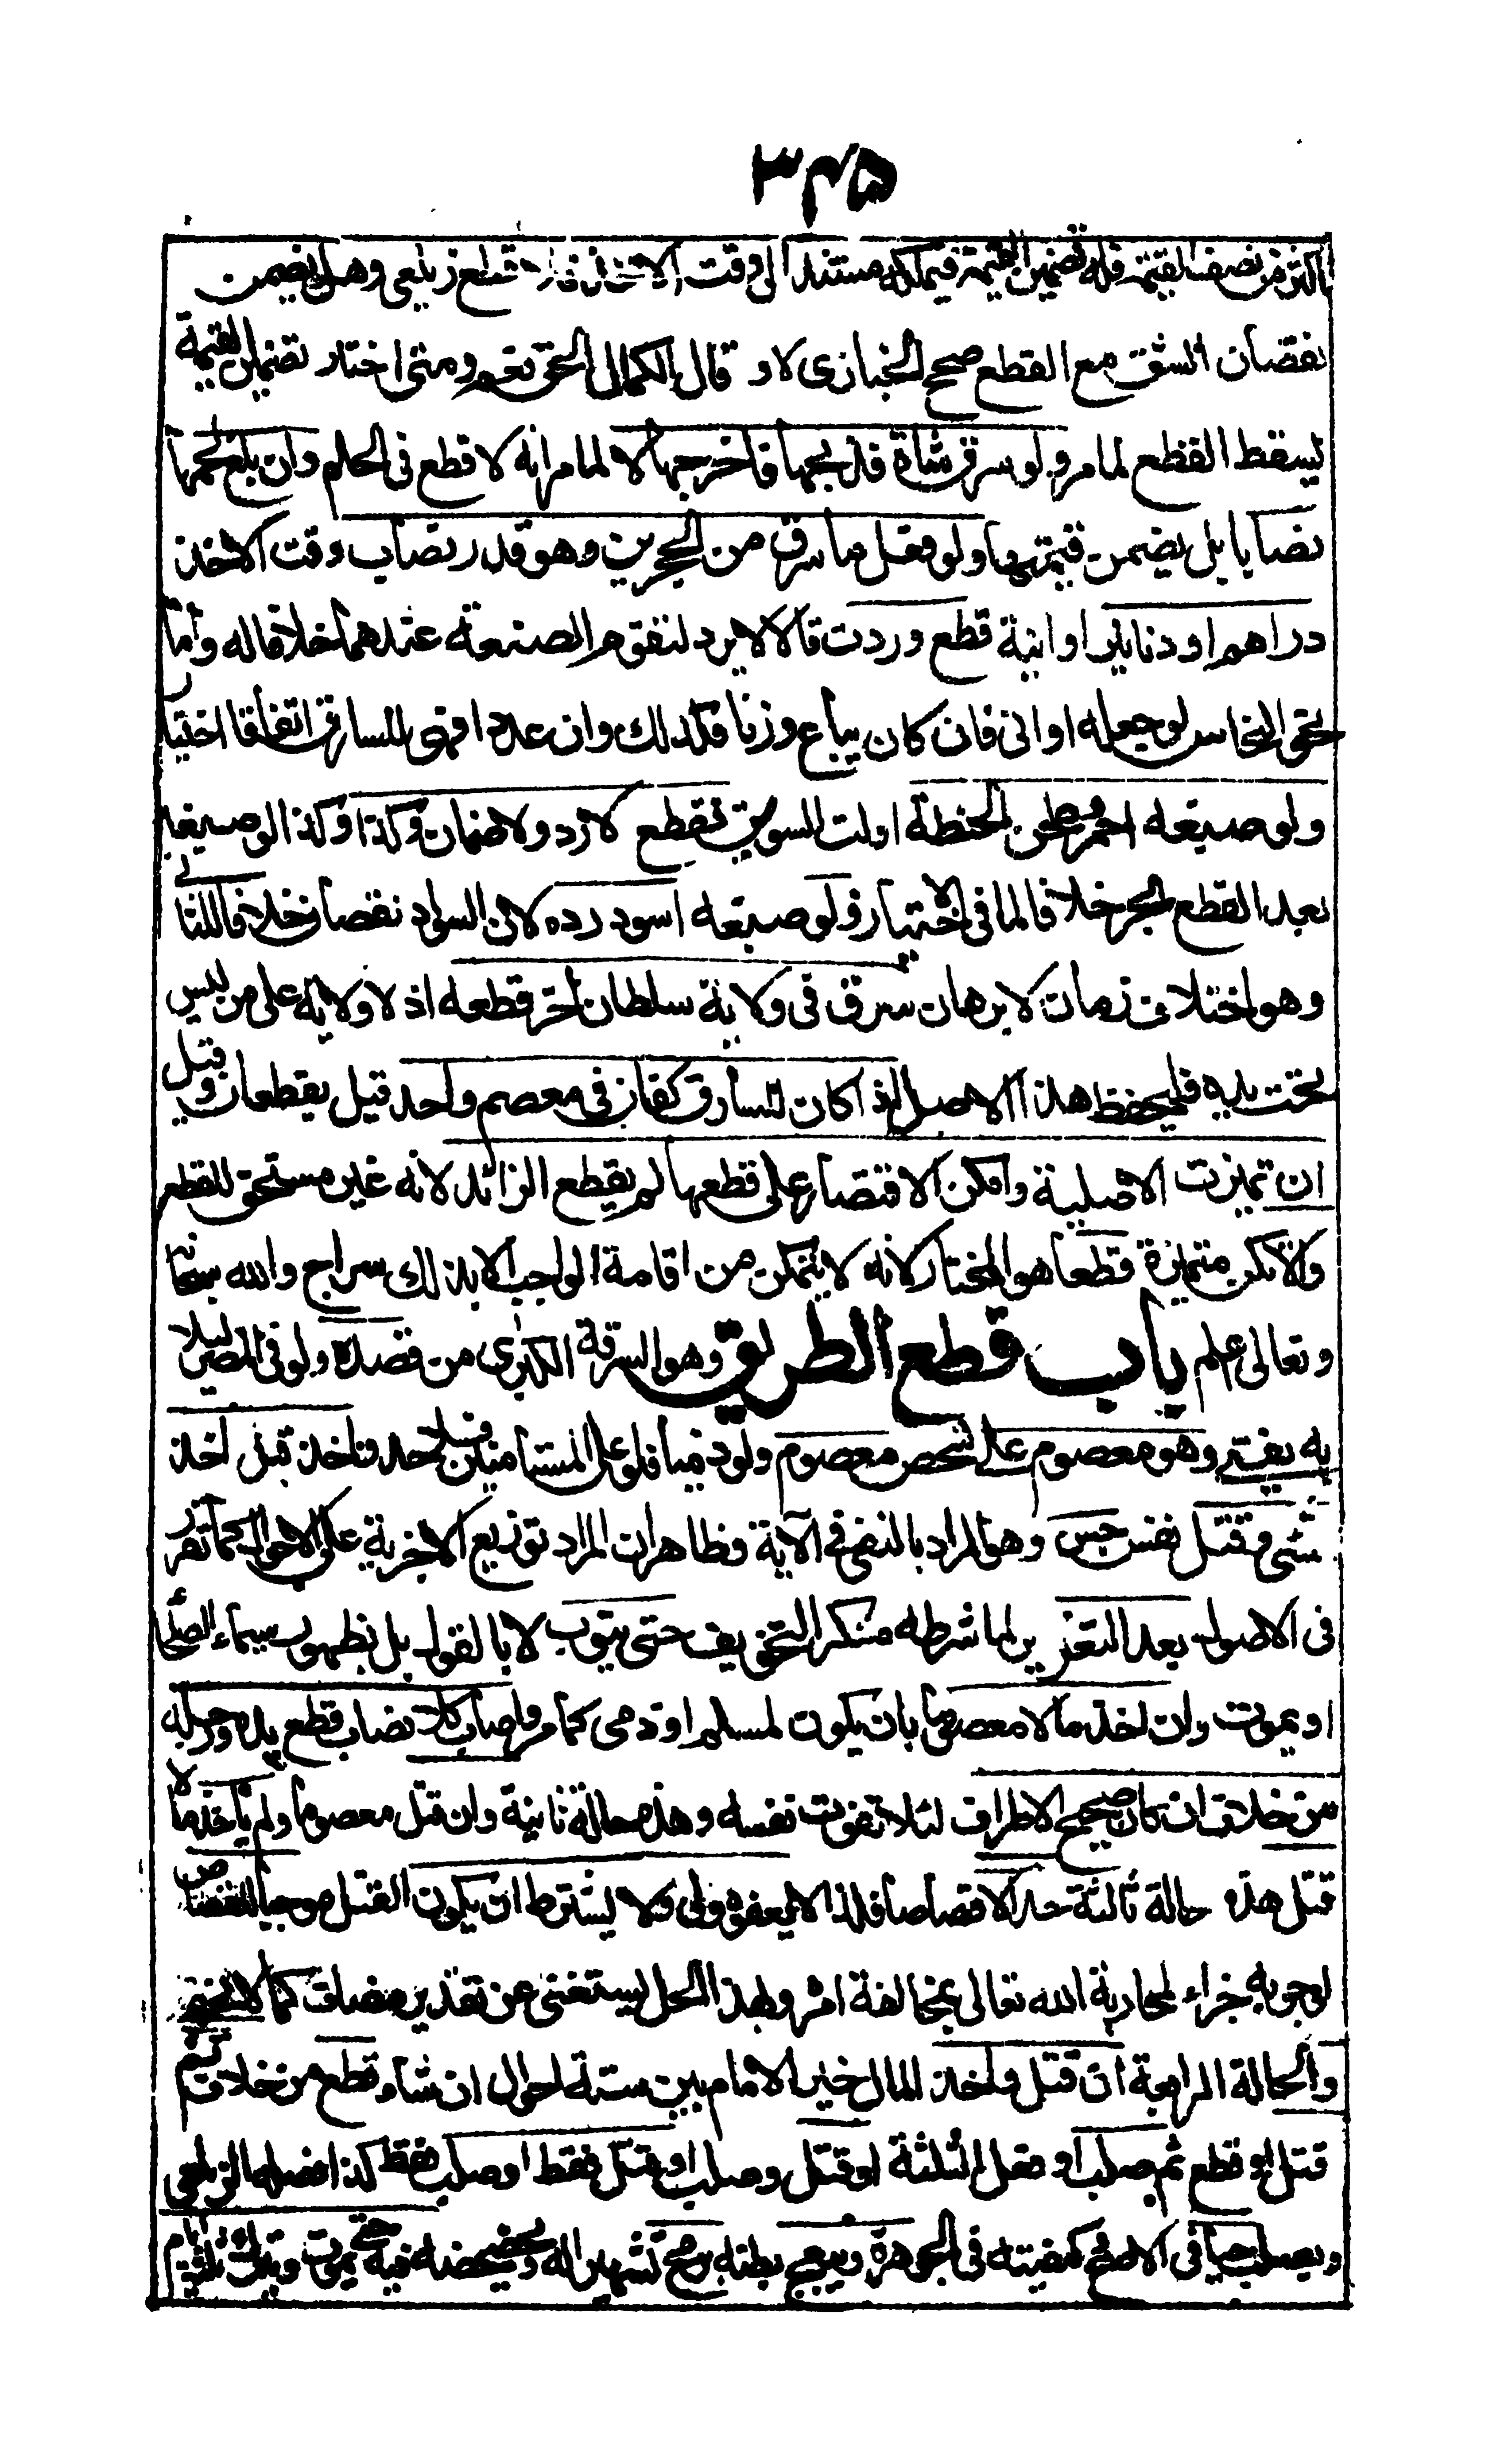 ٣٤٥
باكثر من نصف القيمة فله تضمين القيمة فيملكه مستندا الى وقت الاخذ فلا قطع زيلعي وهل يضمن
نقصان الشق مع القطع صحح الخبازى لا و قال الكمال الحق نعم ومتى اختار تضمين القيمة
يسقط القطع لما مر ولو سرق شاة فذبحها فاخرجها لا لما مر انه لا قطع فى اللحم وان بلغ لحمها
نصابا بل يضمن قيمتها ولو فعل ما سرق من الحجرين وهو قدر نصاب وقت الاخذ
دراهم او دنانير او انية قطع وردت قالا لا يرد لتقوم الصنعة عندهما خلافا له واما
نحو النحاس لو جعله اوانى فان كان يباع وزنا فكذلك وان عددا فهى للسارق اتفاقا اختيار
ولو صبغه احمر وطحن الحنطة او لت السويق فقطع لا رد ولا ضمان وكذا لو صبغه
بعد القطع بحر خلافا لما فى الاختيار ولو صبغه اسود رده لان السواد نقصان خلافا للثانى
وهو اختلاف زمان لا برهان سرق فى ولاية سلطان اخر قطعه اذ لا ولاية على من ليس
تحت يده فليحفظ هذا الاصل اذا كان للسارق كفان فى معصم واحد قيل يقطعان وقيل
ان تميزت الاصلية وامكن الاقتصار على قطعها لم يقطع الزائد لانه غير مستحق للقطع
والا تكن متميزة قطعا هو المختار لانه لا يتمكن من اقامة الواجب الا بذلك سراج والله سبحانه
وتعالى اعلم باب قطع الطريق وهو السرقة الكبرى من قصده ولو فى المصر ليلا
به يفتى وهو معصوم على شخص معصوم ولو ذميا فلو على المستامنين فلا حد فاخذ قبل اخذ
شئ وقتل نفس حبس وهو المراد بالنفى فى الآية وظاهر ان المراد توزيع الاجزية على الاحوال كما تقرر
فى الاصول بعد التعزير لمباشرته منكر التخويف حتى يتوب لا بالقول بل بظهور سيماء الصلحاء
او يموت وان اخذ مالا معصوما بان يكون لمسلم او ذمى كما مر واصاب كلا نصاب قطع يده ورجله
من خلاف ان كان صحيح الاطراف لئلا تفوت نفسه وهذه حالة ثانية وان قتل معصوما ولم ياخذ مالا
قتل هذه حالة ثالثة حدا لا قصاصا فلذا لا يعفوه ولى ولا يشترط ان يكون القتل موجبا للقصاص
لوجوبه جزاء لمحاربة الله تعالى بمخالفة امره وبهذا الحل يستغنى عن تقدير مضاف كما لا يخفى
والحالة الرابعة ان قتل واخذ المال خير الامام بين ستة احوال ان شاء قطع من خلاف ثم
قتل او قطع ثم صلب او فعل الثلثة او قتل وصلب او قتل فقط او صلب فقط كذا فصله الزيلعى
ويصلب حيا فى الاصح كيفيته فى الجوهرة ويبعج بطنه برمح تشهيرا له ويخضخضه فيه حتى يموت ويترك ثلثة ايام